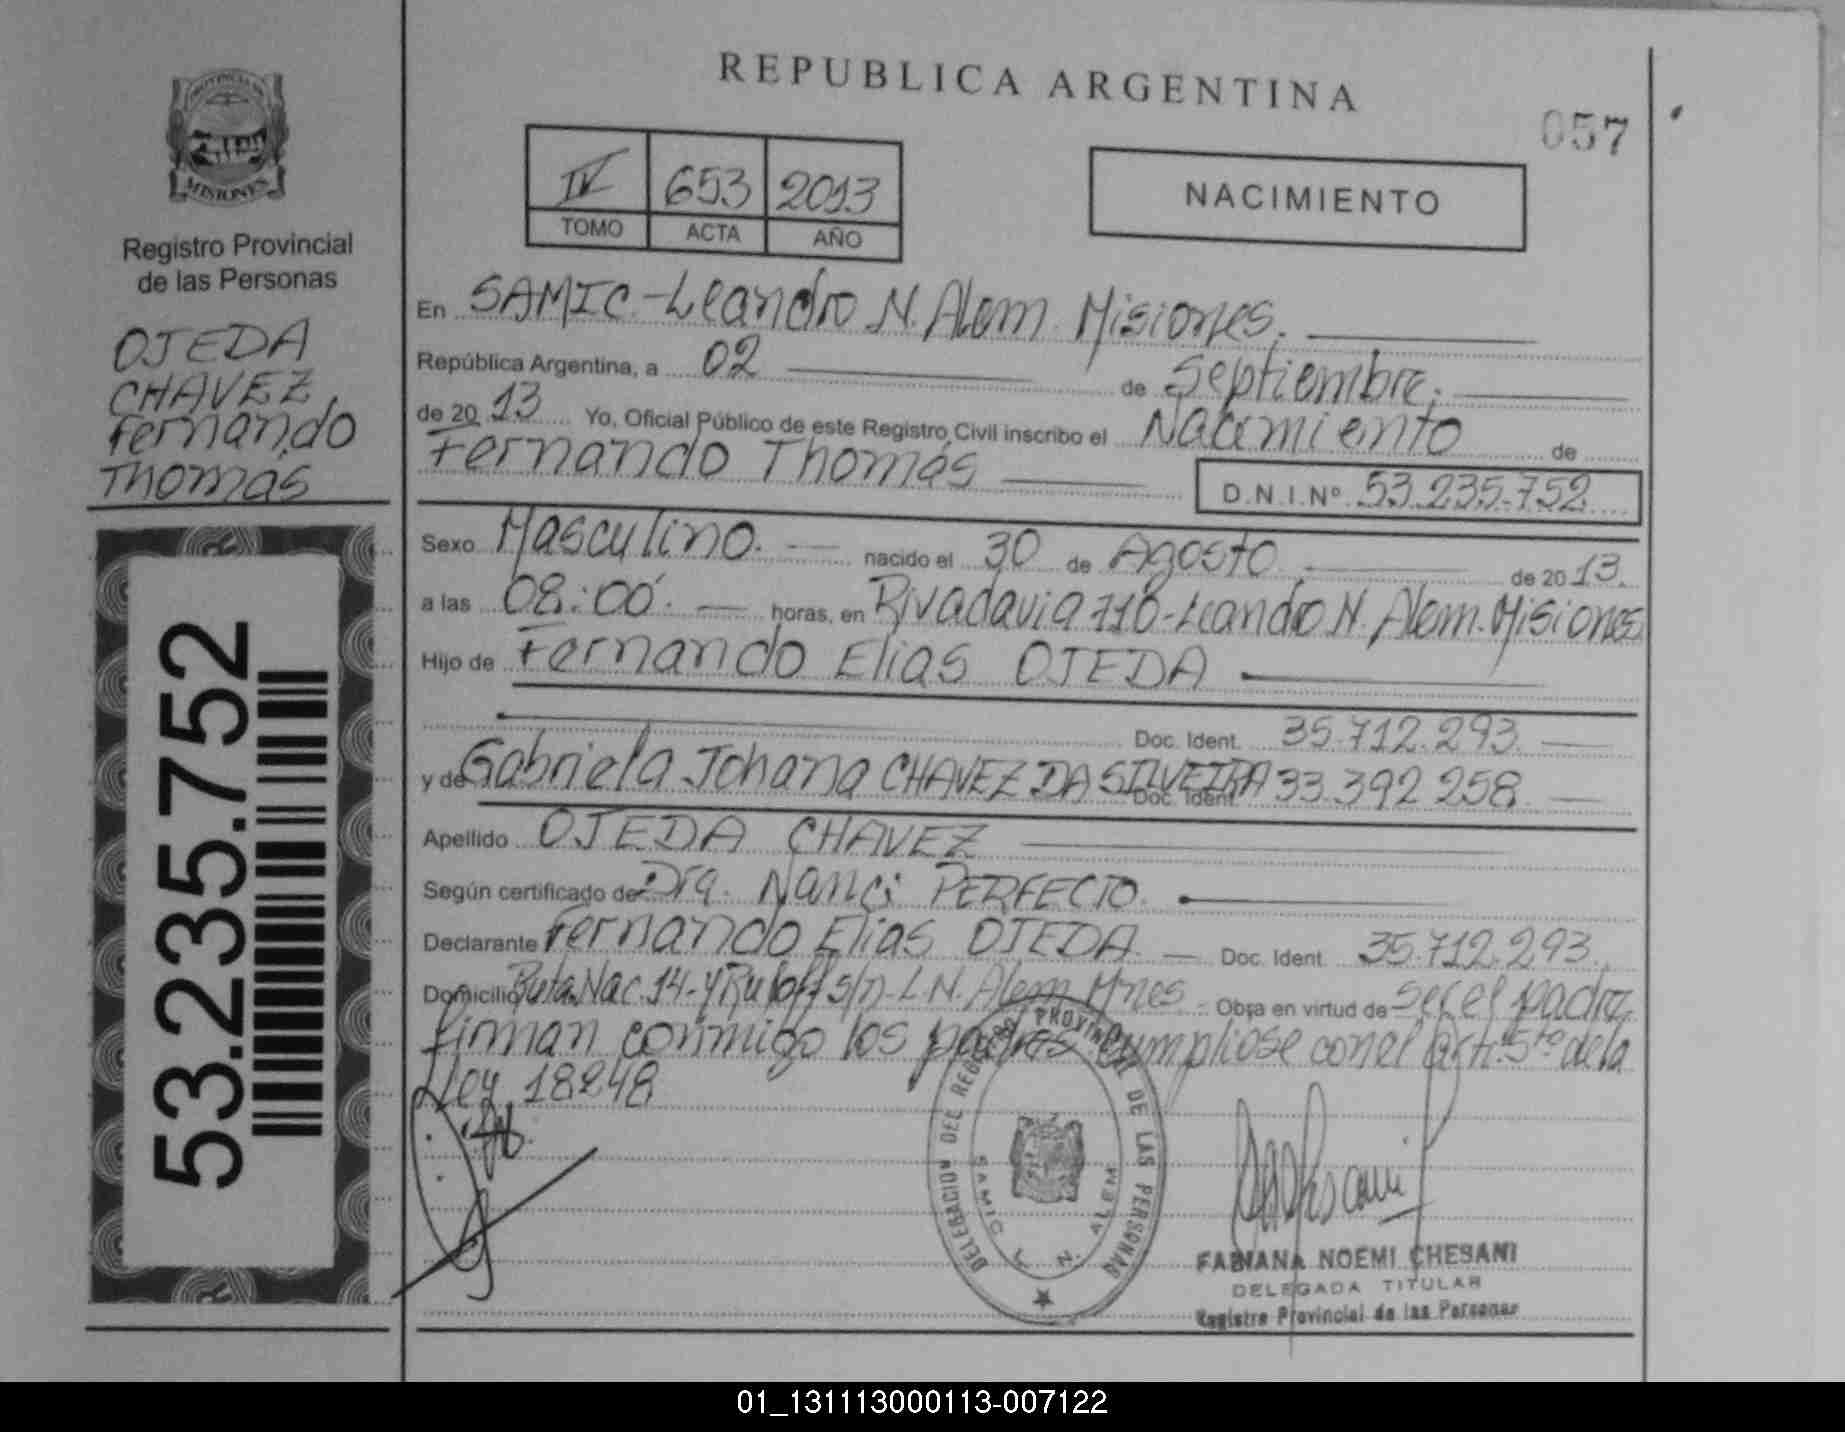 REPUBLICA ARGENTINA
057
PROVINCIA DE
MISIONES
Registro Provincial
de las Personas
OJEDA
CHAVEZ,
Fernando
Thomás
53.235.752
IV 653 2013
TOMO ACTA AÑO
NACIMIENTO
En SAMIC-Leandro N. Alem. Misiones.
República Argentina, a 02 de Septiembre,
de 20 13 Yo, Oficial Público de este Registro Civil inscribo el Nacimiento de
Fernando Thomás D.N.I.Nº 53.235.752
Sexo Masculino. nacido el 30 de Agosto de 20 13.
a las 08:00. horas, en Rivadavia 710-Leandro N. Alem. Misiones
Hijo de Fernando Elias OJEDA
Doc. Ident. 35.712.293
y de Gabriela Johana CHAVEZ DA SILVEIRA Doc. Ident. 33.392 258
Apellido OJEDA CHAVEZ
Según certificado de Dra. Nanci PERFECTO.
Declarante Fernando Elias OJEDA. Doc. Ident. 35.712.293.
Domicilio Ruta Nac. 14-y Ruloff s/n-L.N. Alem Mnes. Obra en virtud de ser el padre.
firman conmigo los padres cumpliose con el art. 5to de la
Ley 18248
DELEGACION DEL REGISTRO PROVINCIAL DE LAS PERSONAS
SAMIC L. N. ALEM
FABIANA NOEMI CHESANI
DELEGADA TITULAR
Registro Provincial de las Personas
01_131113000113-007122